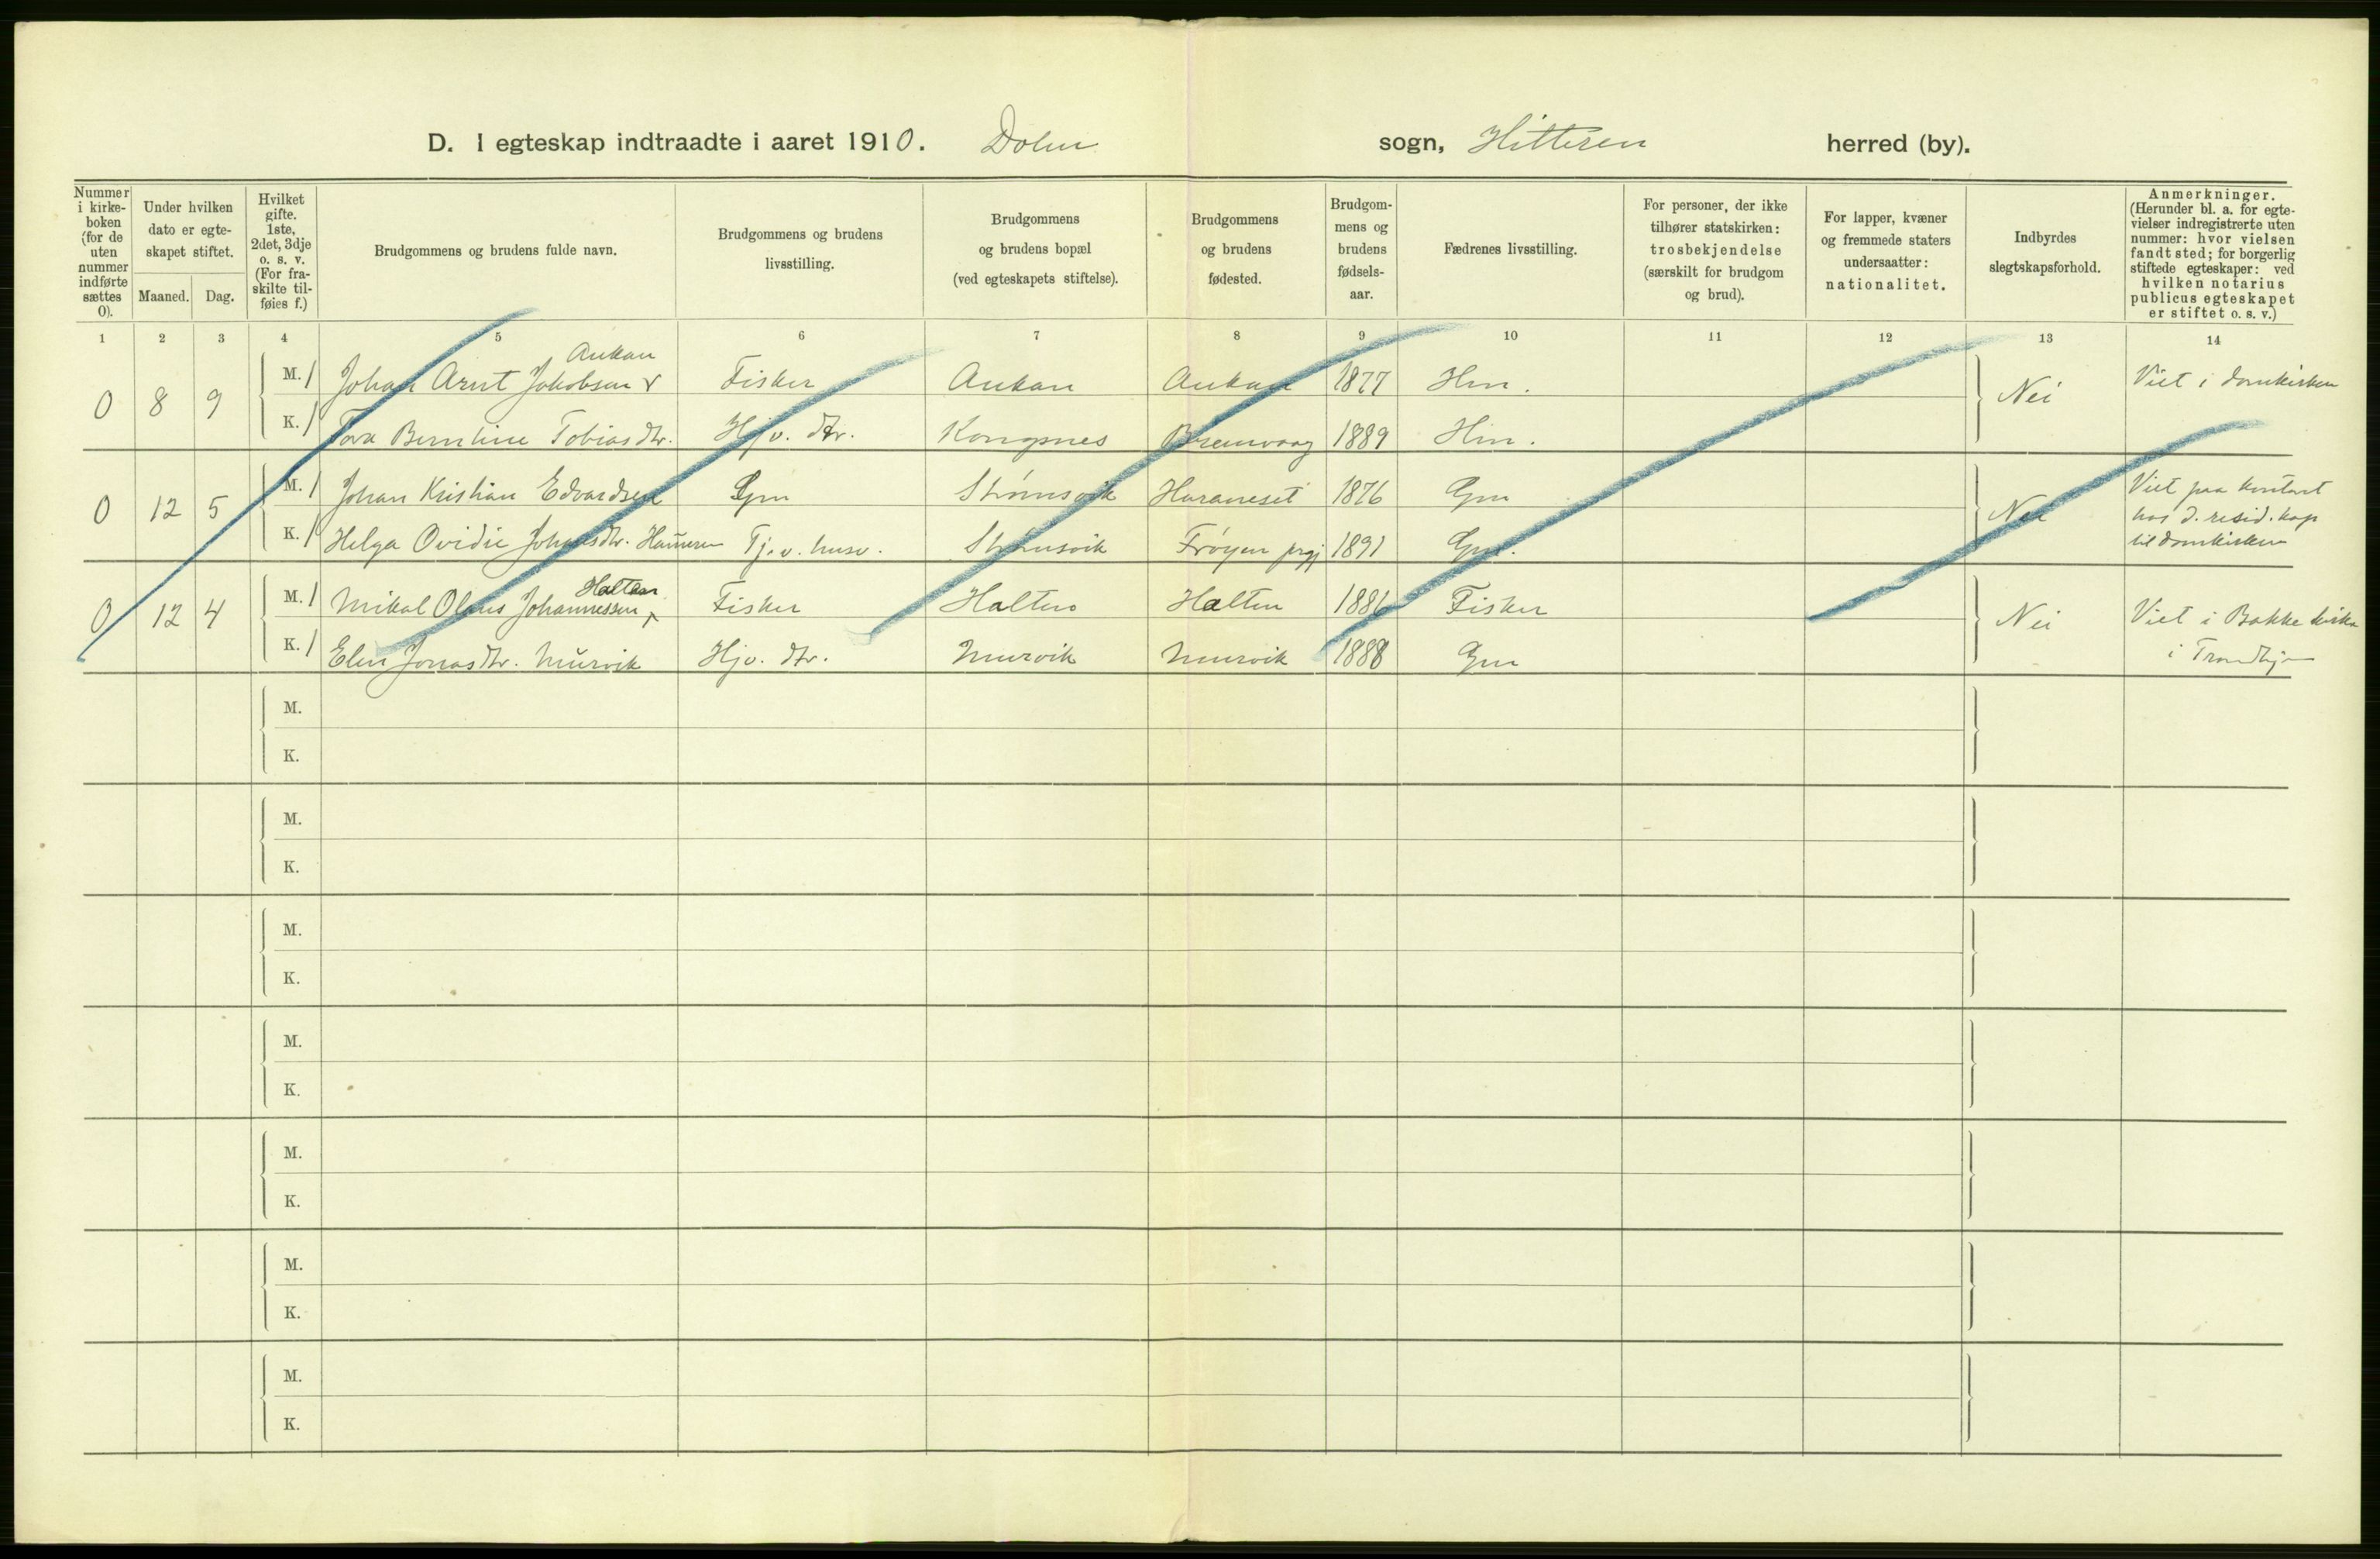 D. I egteskap indtraadte i aaret 1910. Dolm sogn, Hitteren herred (by).
Nummer i kirke-boken (for de uten nummer indførte sættes 0).
Under hvilken dato er egte-skapet stiftet.
Maaned. Dag.
Hvilket gifte. 1ste, 2det, 3dje o. s. v. (For fra-skilte til-føies f.)
Brudgommens og brudens fulde navn.
Brudgommens og brudens livsstilling.
Brudgommens og brudens bopæl (ved egteskapets stiftelse).
Brudgommens og brudens fødested.
Brudgom-mens og brudens fødsels-aar.
Fædrenes livsstilling.
For personer, der ikke tilhører statskirken: trosbekjendelse (særskilt for brudgom og brud).
For lapper, kvæner og fremmede staters undersaatter: nationalitet.
Indbyrdes slegtskapsforhold.
Anmerkninger. (Herunder bl. a. for egte-vielser indregistrerte uten nummer: hvor vielsen fandt sted; for borgerlig stiftede egteskaper: ved hvilken notarius publicus egteskapet er stiftet o. s. v.)
1 2 3 4 5 6 7 8 9 10 11 12 13 14
Aukan
0 8 9 M. 1 Johan Arnt Jakobsen Fisker Aukan Aukan 1877 Hm. Nei Viet i domkirken
K. 1 Berntine Tobiasdtr. Hjv. dtr. Kongsnes 1889 Hm.
0 12 5 M. 1 Johan Kristian Edvardsen Gm Strømsvik Haraneset 1876 Gm Nei Viet paa kontoret
hos d. resid. kap
til domkirken
K. 1 Helga Ovidie Johansdtr. Tj. v. husv. Strømsvik Frøyen prgj 1891 Gm.
Halten
0 12 4 M. 1 Mikal Olaus Johannessen Fisker Halten Halten 1886 Fisker Nei Viet i Bakke kirke
i Trondhjem
K. 1 Elen Jonasdtr. Murvik Hjv. dtr. Murvik Murvik 1888 Gm
M.
K.
M.
K.
M.
K.
M.
K.
M.
K.
M.
K.
M.
K.